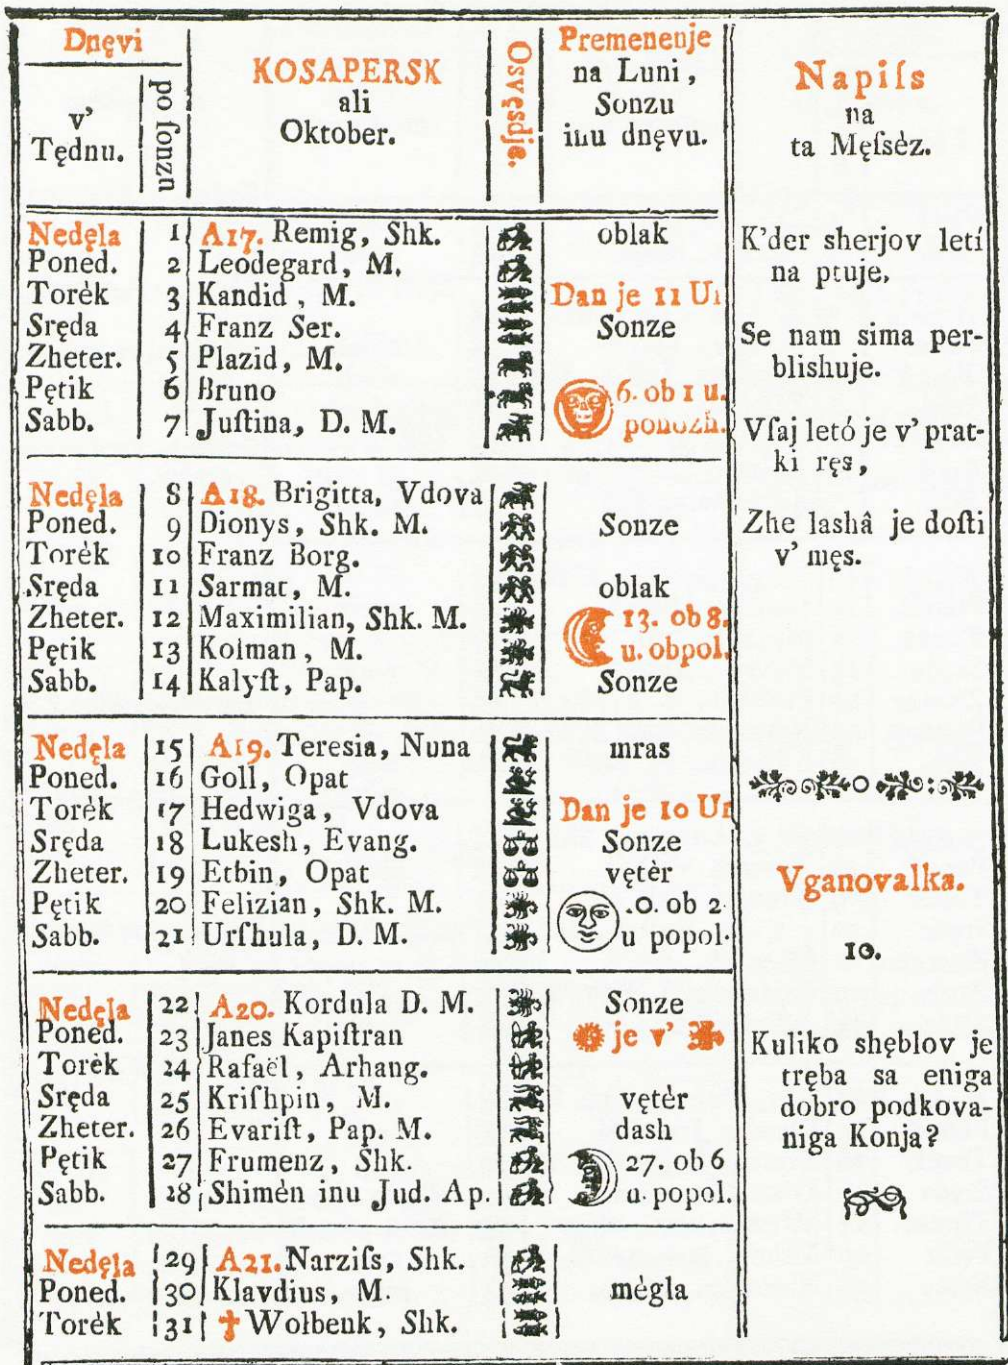 Dnęvi
v'
Tędnu.
po ſonzu
KOSAPERSK
ali
Oktober.
Osvęsdje.
Premenenje
na Luni,
Sonzu
inu dnęvu.
Napiſs
na
ta Męſsèz.
Nedęla 1 A17. Remig, Shk. oblak
Poned. 2 Leodegard, M.
Torèk 3 Kandid, M. Dan je 11 Ur
Sręda 4 Franz Ser. Sonze
Zheter. 5 Plazid, M.
Pętik 6 Bruno 6. ob 1 u.
Sabb. 7 Juſtina, D. M. ponozh.
Nedęla 8 A18. Brigitta, Vdova
Poned. 9 Dionys, Shk. M. Sonze
Torèk 10 Franz Borg.
Sręda 11 Sarmat, M. oblak
Zheter. 12 Maximilian, Shk. M. 13. ob 8.
Pętik 13 Kolman, M. u. obpol.
Sabb. 14 Kalyſt, Pap. Sonze
Nedęla 15 A19. Teresia, Nuna mras
Poned. 16 Goll, Opat
Torèk 17 Hedwiga, Vdova Dan je 10 Ur
Sręda 18 Lukesh, Evang. Sonze
Zheter. 19 Etbin, Opat vętèr
Pętik 20 Felizian, Shk. M. .0. ob 2
Sabb. 21 Urſhula, D. M. u popol.
Nedęla 22 A20. Kordula D. M. Sonze
Poned. 23 Janes Kapiſtran je v'
Torèk 24 Rafaël, Arhang.
Sręda 25 Kriſhpin, M. vętèr
Zheter. 26 Evariſt, Pap. M. dash
Pętik 27 Frumenz, Shk. 27. ob 6
Sabb. 28 Shimèn inu Jud. Ap. u. popol.
Nedęla 29 A21. Narziſs, Shk.
Poned. 30 Klavdius, M. mègla
Torèk 31 † Wolbenk, Shk.
K'der sherjov letí
na ptuje,
Se nam sima per-
blishuje.
Vſaj letó je v' prat-
ki ręs,
Zhe lashâ je doſti
v' męs.
Vganovalka.
10.
Kuliko shęblov je
tręba sa eniga
dobro podkova-
niga Konja?